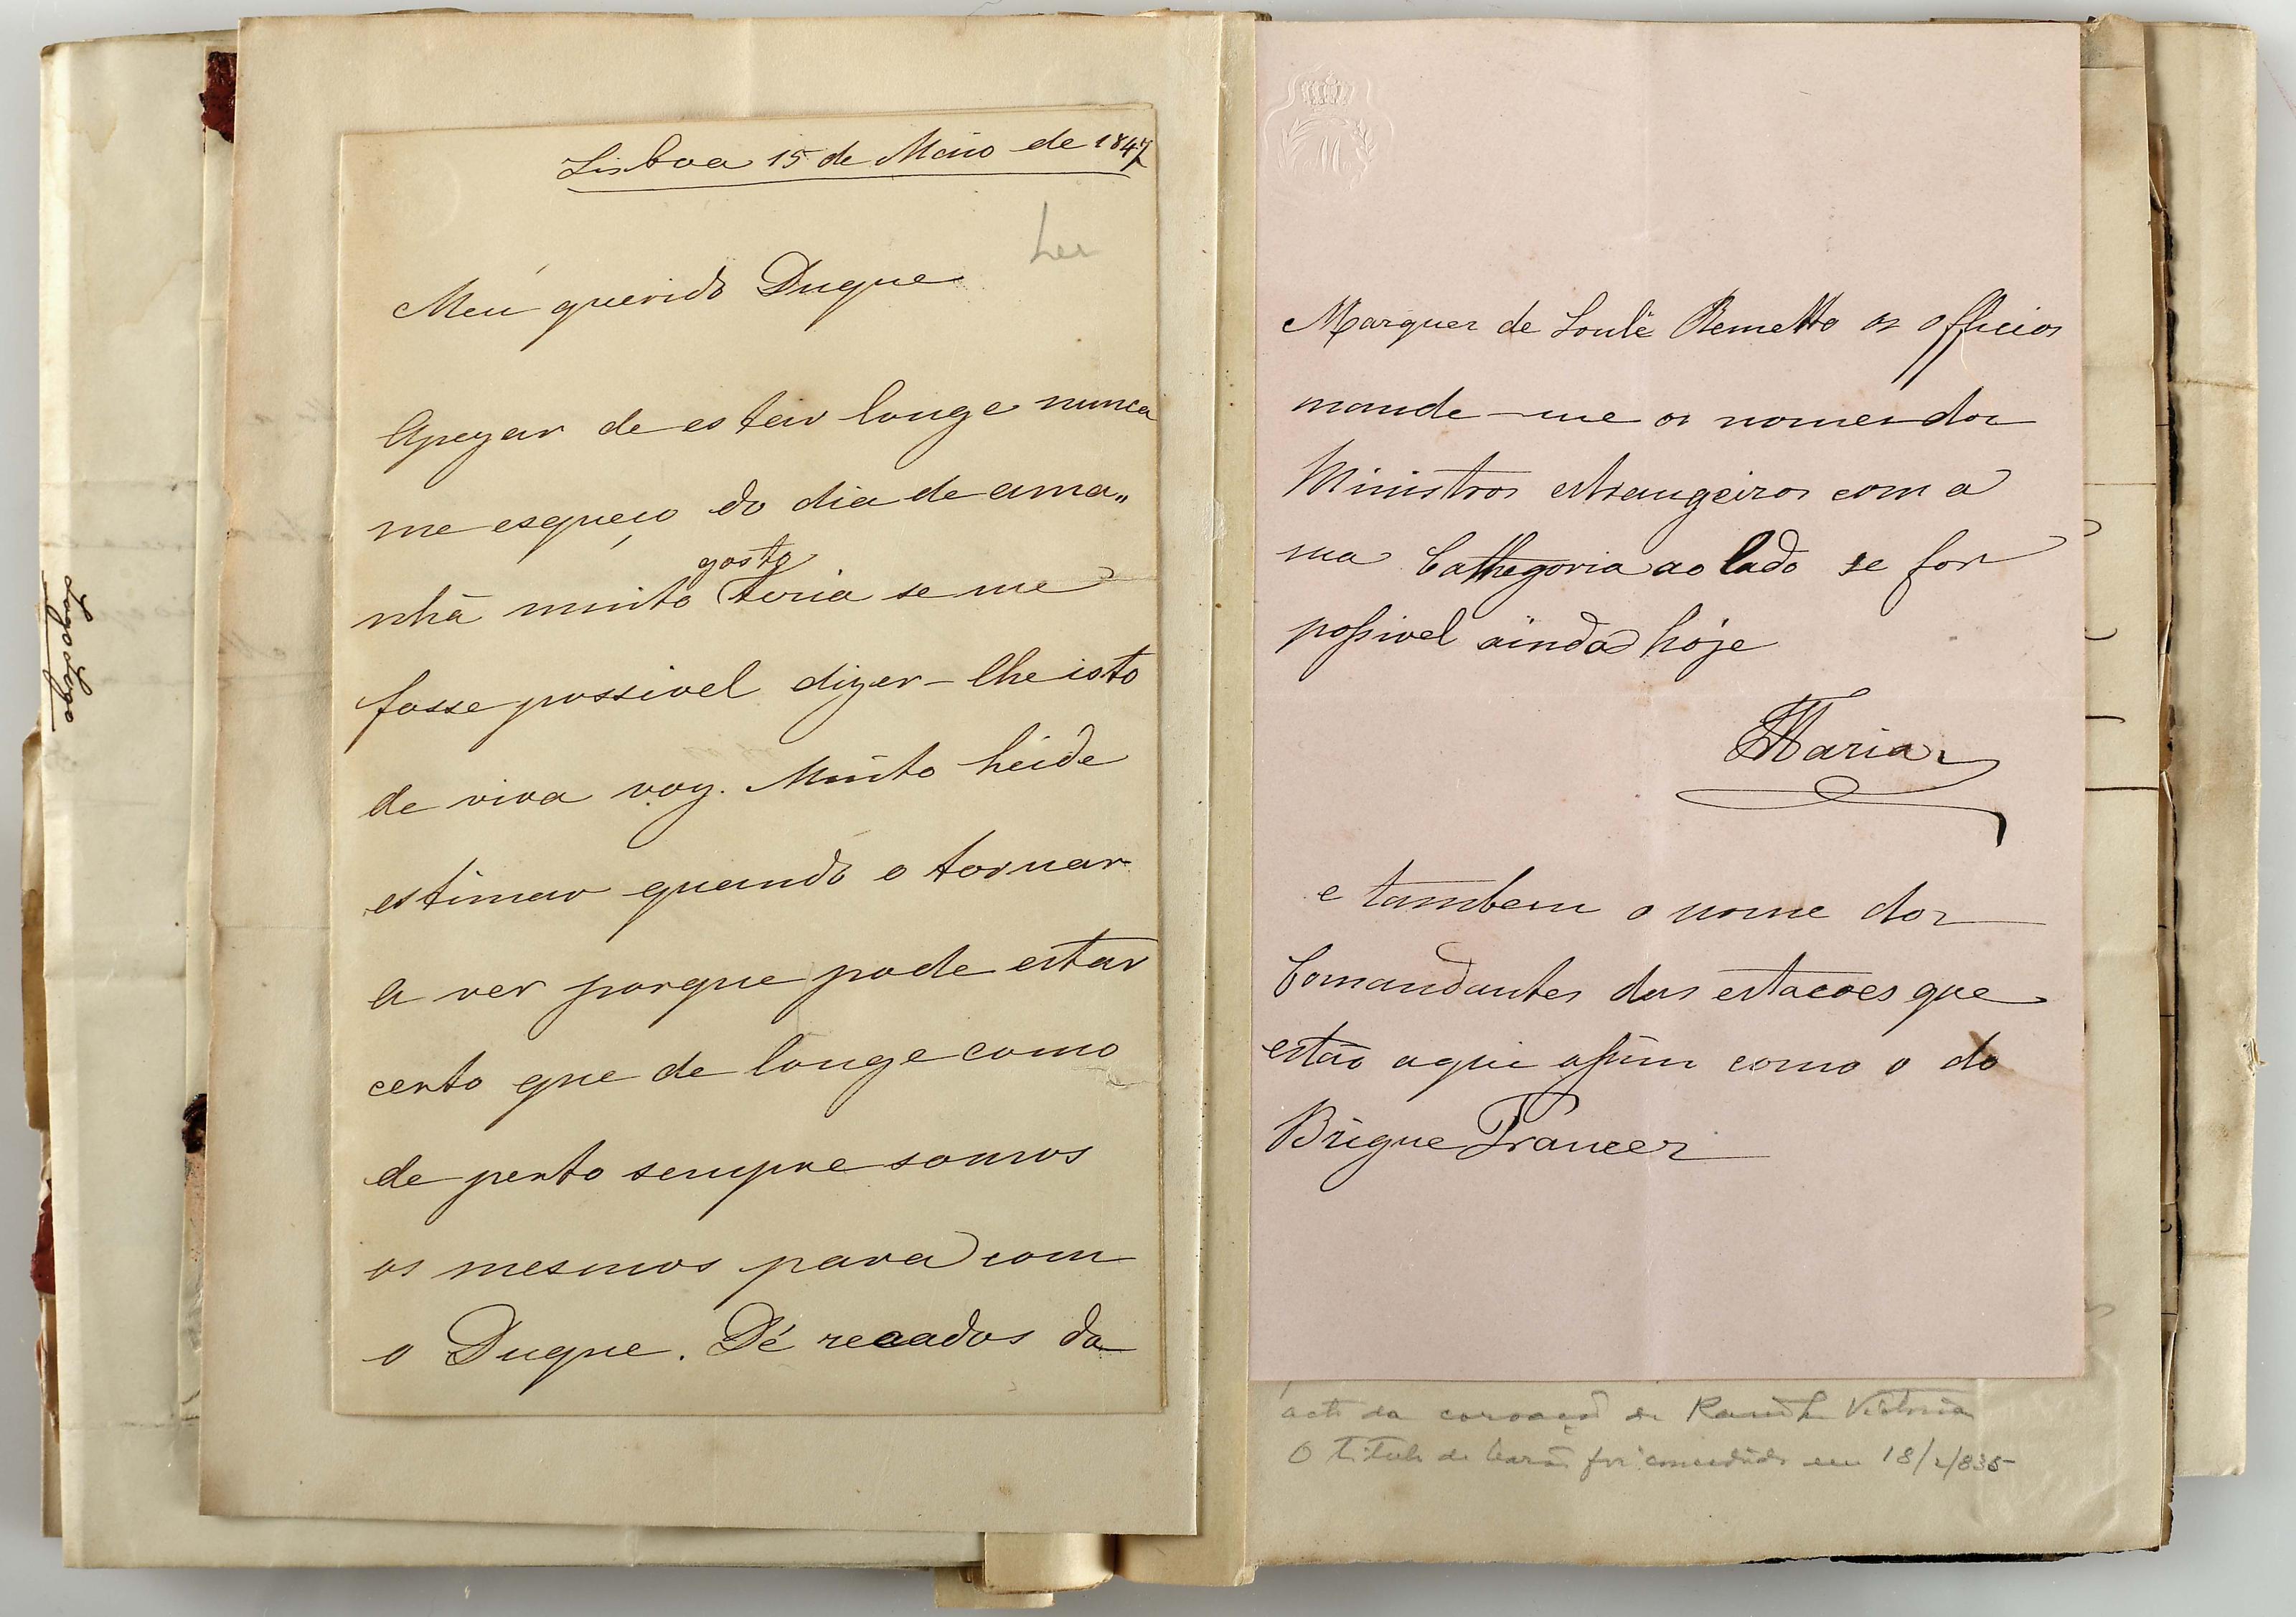 Lisboa 15 de Maio de 1847
Ler
Meu querido Duque
Apezar de estar longe nunca
me esqueço do dia de ama„
gosto
nhã muito teria se me
fosse possivel dizer-lhe isto
de viva voz. Muito heide
estimar quando o tornar
a ver porque pode estar
certo que de longe como
de perto sempre somos
os mesmos para com
o Duque. Dé recados da
M
Marquez de Loulé Remetto os officios
mande-me os nomes dos
Ministros estrangeiros com a
sua Cathegoria ao lado se for
possivel ainda hoje
Maria
e tambem o nome dos
Comandantes das estacoes que
estão aqui assim como o do
Brigue Francez
acto da coroação da Rainha Victoria
O titulo de barão foi concedido em 18/2/835